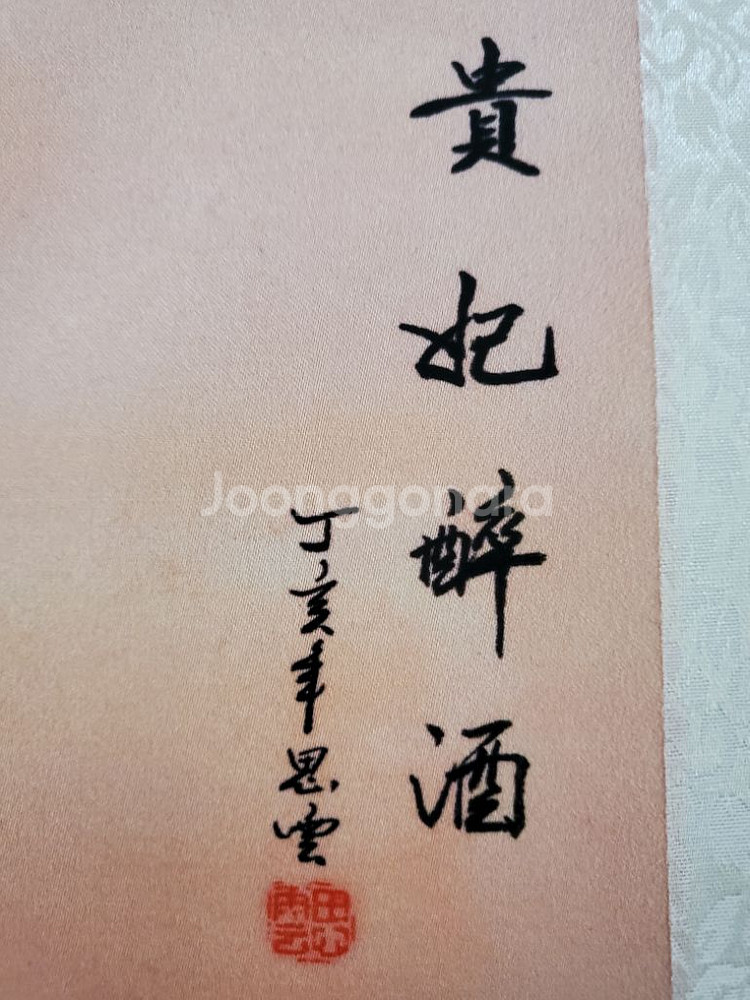 貴妃醉酒
丁亥年思雲
思雲
Joonggonara